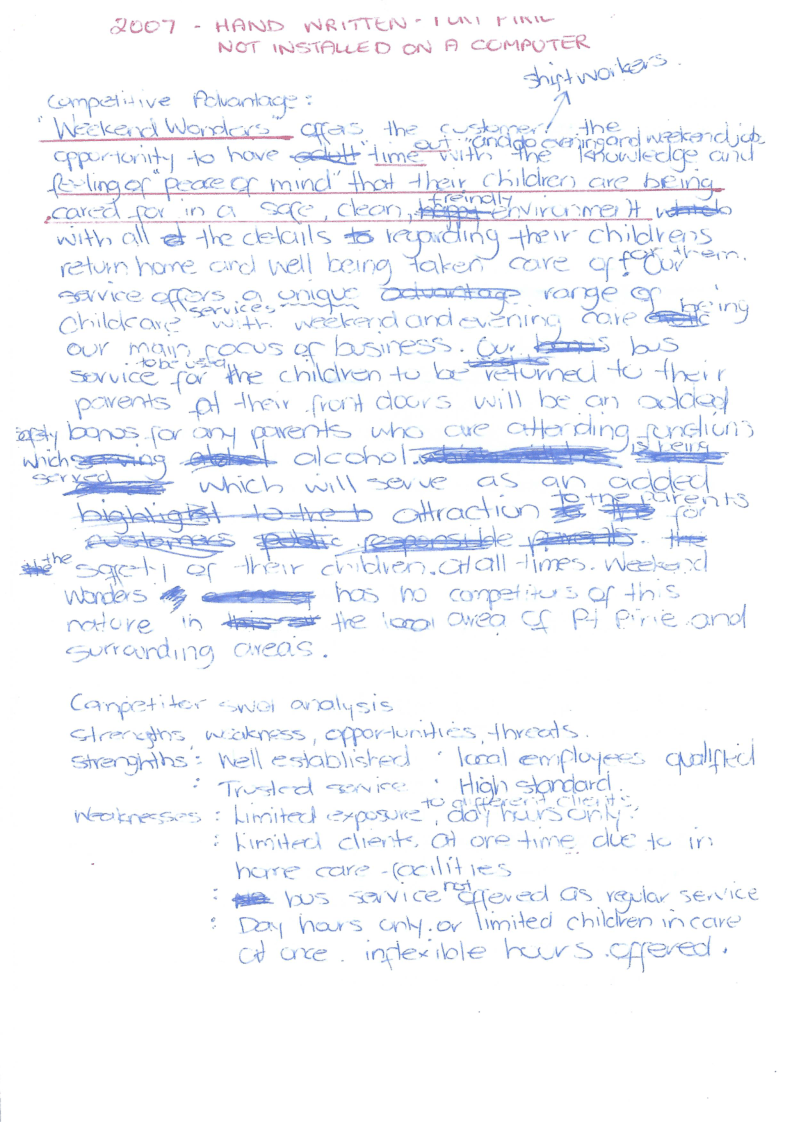 2007 - HAND WRITTEN - PORT PIRIE
NOT INSTALLED ON A COMPUTER
shift workers.
Competitive Advantage:
"Weekend Wonders" offers the customer! the
out "and do evening and weekend job
opportunity to have "time with the knowledge and
feeling of "peace of mind" that their children are being
freindly
cared for in a safe, clean, environment
with all the details regarding their childrens
return home and well being taken care of for them. Our
service offers a unique range of
childcare services with weekend and evening care being
our main focus of business. Our bus
to be used
service for the children to be returned to their
parents at their front doors will be an added
safety bonus for any parents who are attending functions
which alcohol is being
served which will serve as an added
attraction to the parents for
the safety of their children at all times. Weekend
Wonders has no competitors of this
nature in the local area of Pt Pirie and
surrounding areas.
Competitor swot analysis
Strengths, weakness, opportunities, threats.
Strenghths: Well established · local employees qualified
: Trusted service · High standard.
Weaknesses: Limited exposure to different clients, day hours only.
: Limited clients at one time due to in
home care facilities
: bus service not offered as regular service
: Day hours only or limited children in care
at once. inflexible hours offered.